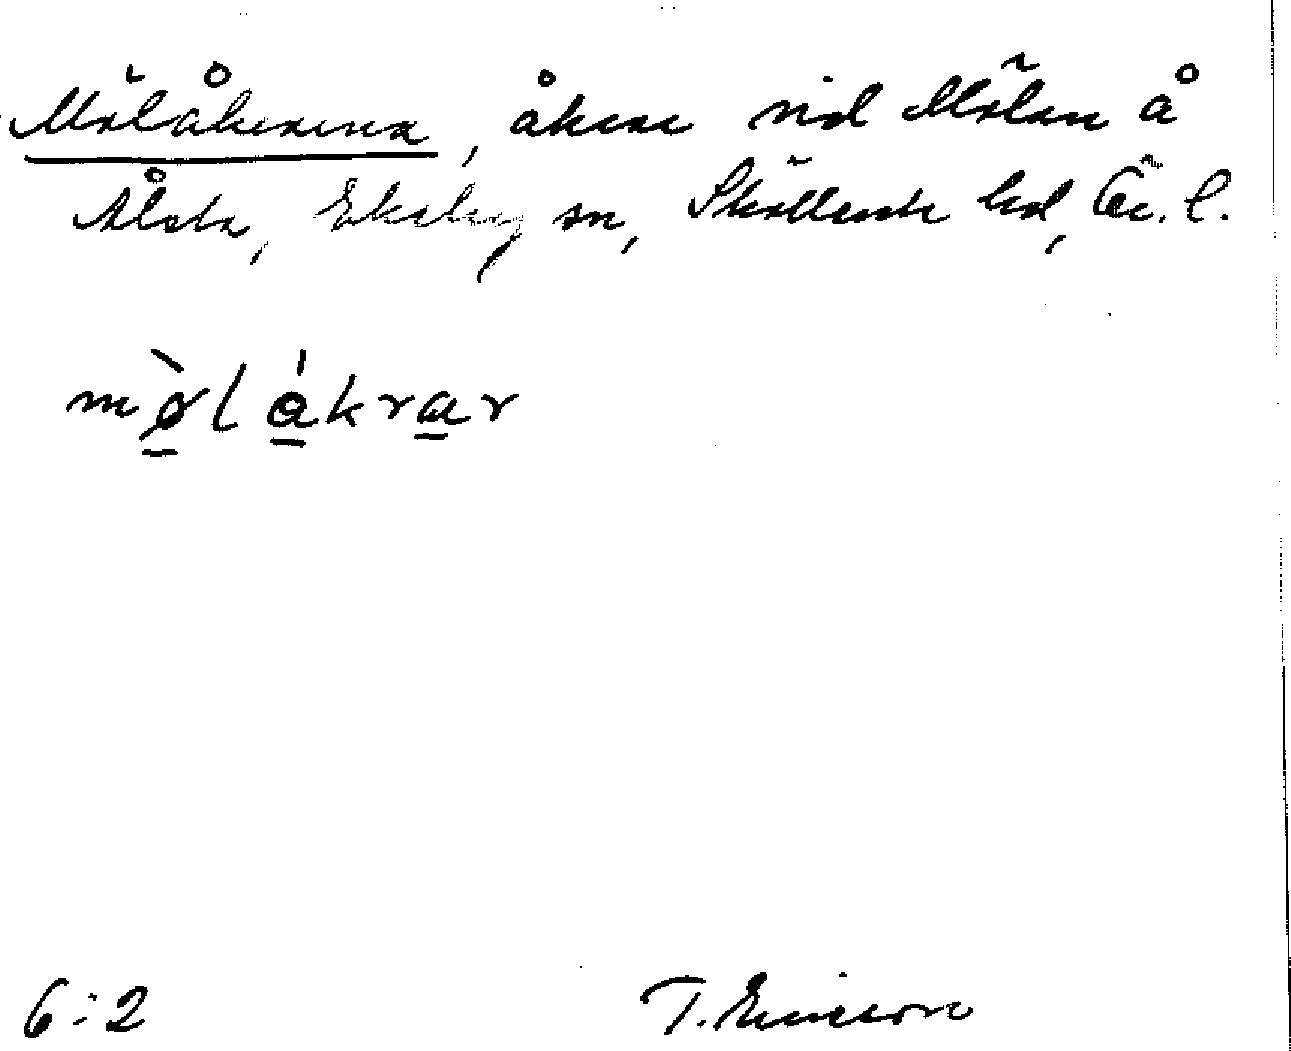 Mölåkrarna, åkrar vid Mölan å
Ålsta, Ekeby sn, Sköllersta hd, Ör. l.
mö̀lákrar
6:2
T. Ericsson